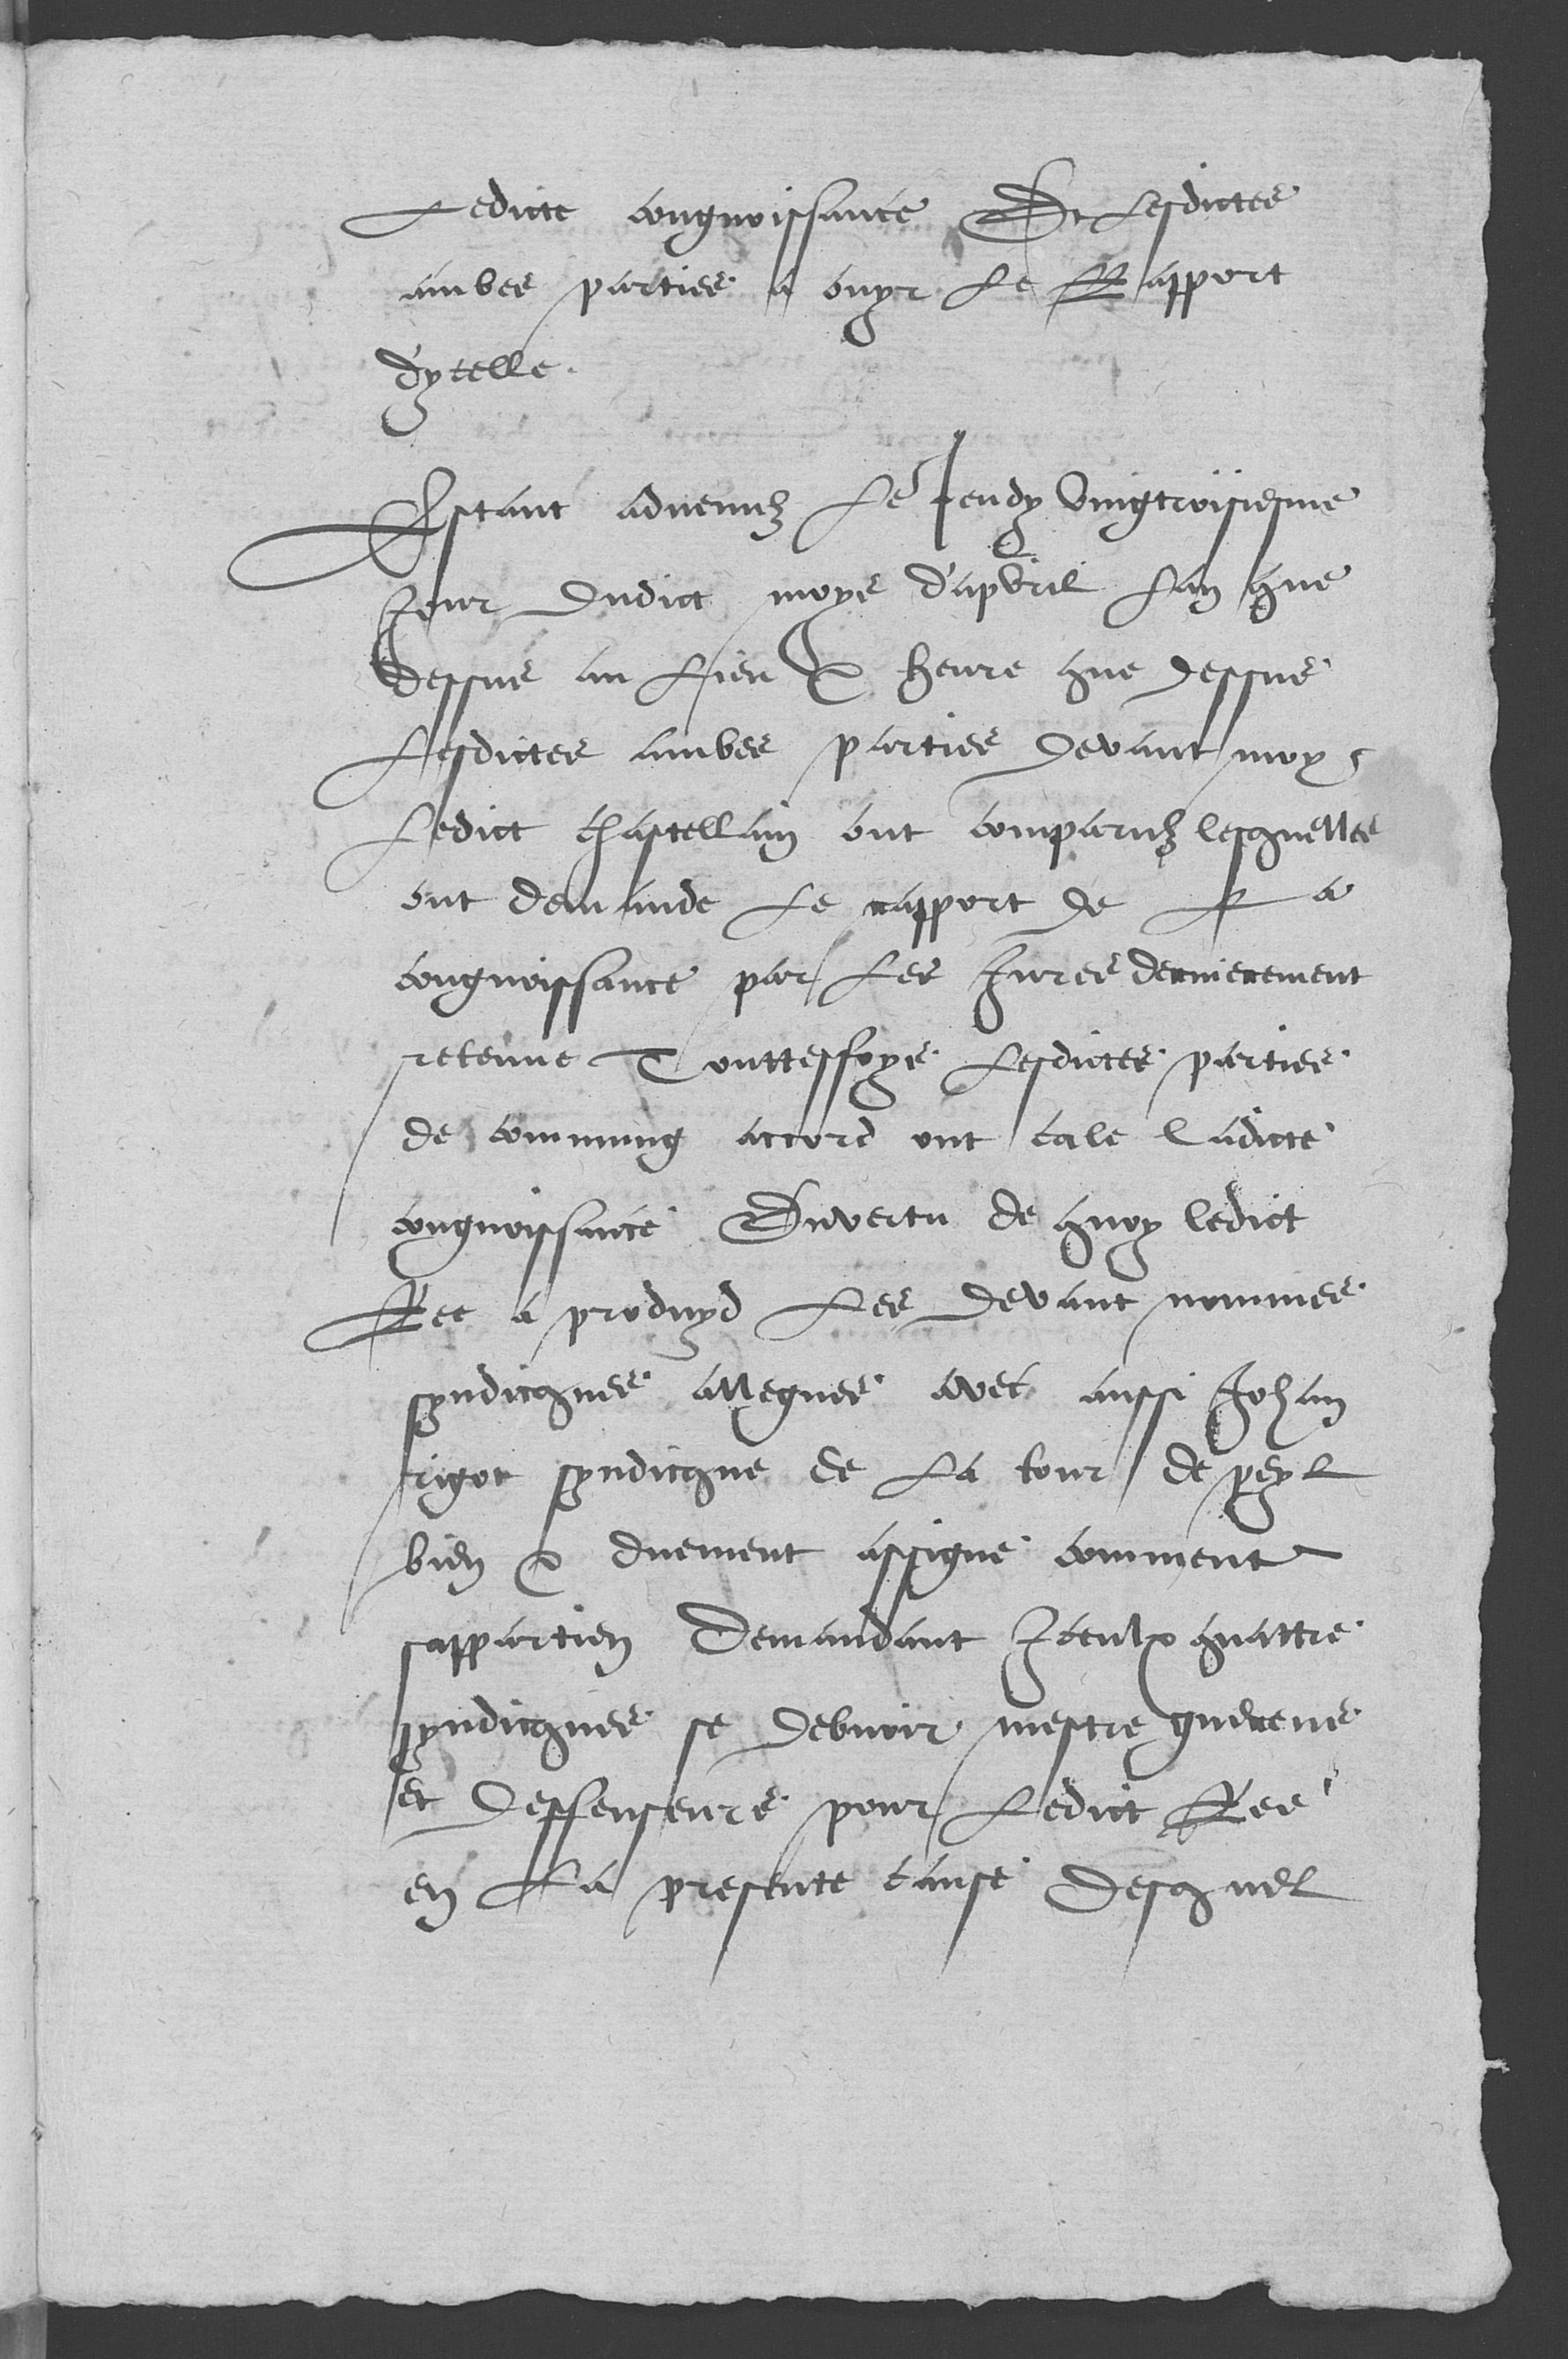 Ledicte congnoissance Et Lesdictes
ambes parties a ouyr Le Rapport
d'ycelle.
Estant advenuz Le Jeudy vingtroisiesme
Jour dudict moys d'apvril Lan que
dessus au Lieu & heure que dessus
Lesdictes ambes parties devant moy
Ledict chastellain ont comparuz lesquelles
ont demande Le rapport de La
congnoissance par Les Jures dernierement
retenue Touttesfoys Lesdictes parties
de commung accord ont cale Ladicte
congnoissance En vertu de quoy ledict
Ree a produyd Les devant nommes
syndicques allegues avec aussi Johan
rigot syndicque de La tour de peyl
bien & duement assigne comment
sappartien Demandant Iceulx quattre
syndicques se debvoir mestre guerens
et deffenseurs pour Ledict Ree
en La presente cause Desquel